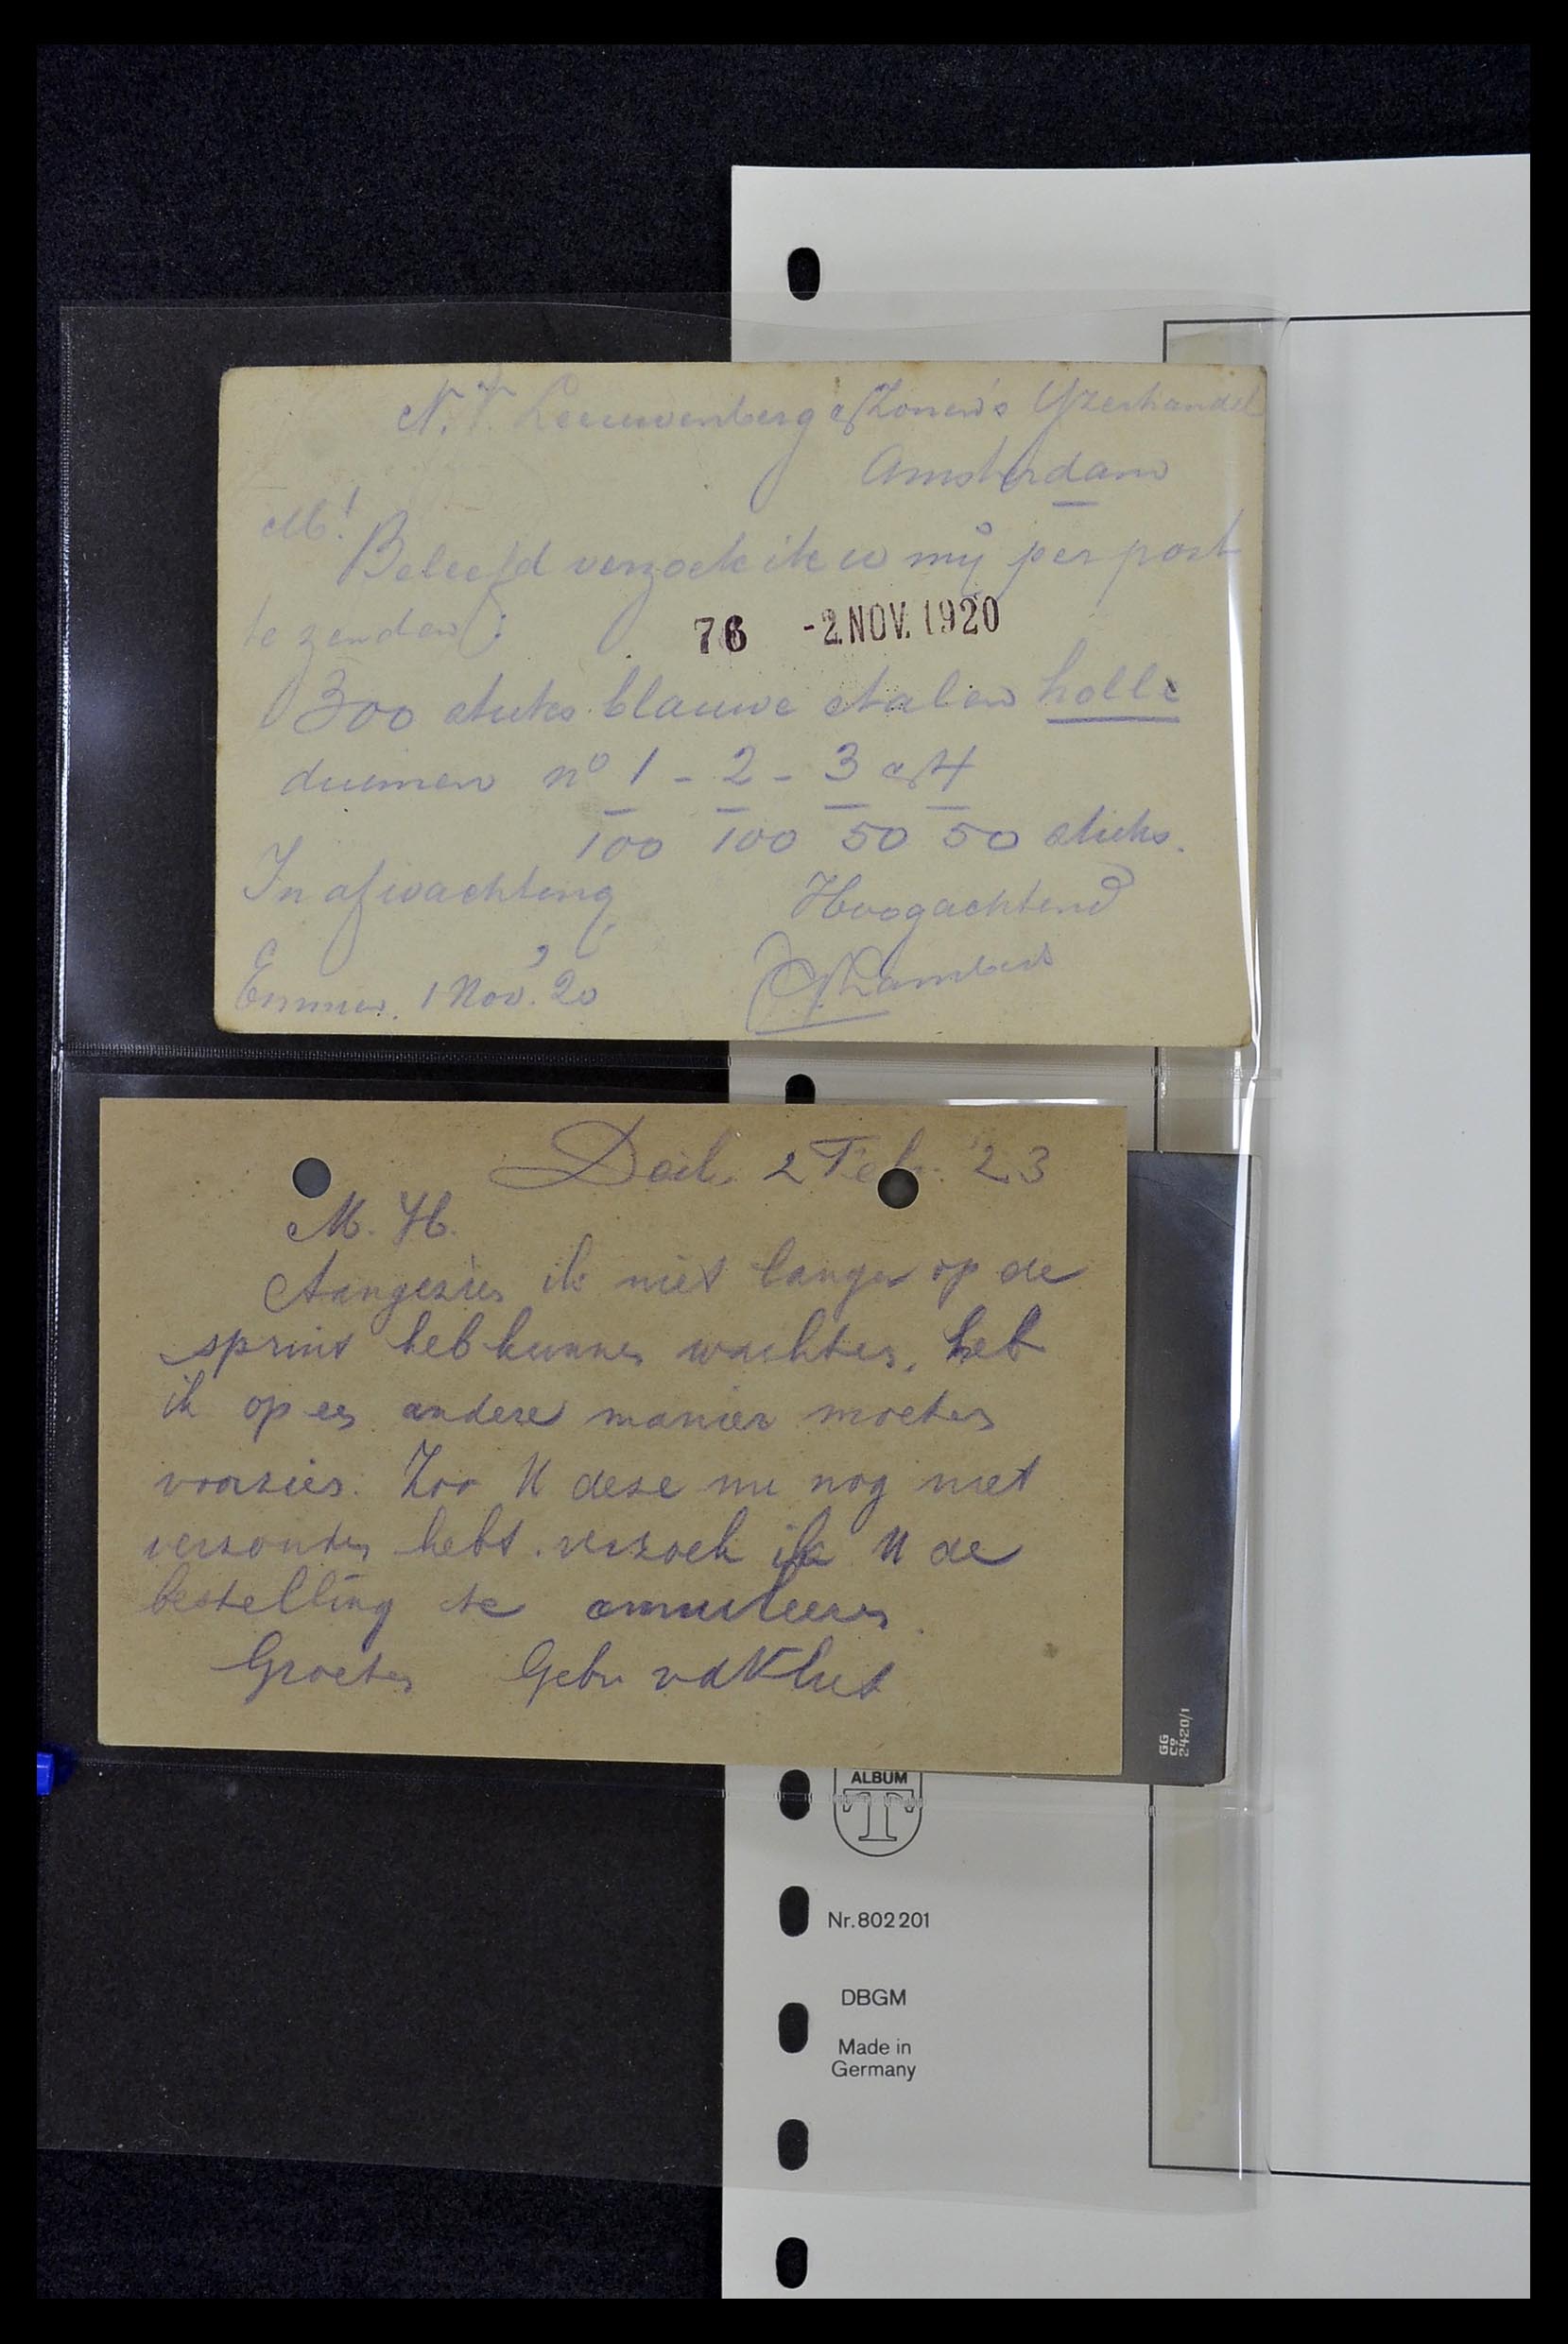 N.V. Leeuwenberg & Zonen's IJzerhandel
Amsterdam
M!
Beleefd verzoek ik u mij per post
te zenden:
76 -2.NOV.1920
300 stuks blauwe stalen holle
duimen no 1 - 2 - 3 & 4
100 100 50 50 stuks.
In afwachting,
Hoogachtend
Lambers
Emmen. 1 Nov. '20
Deil. 2 Feb. '23
M. H.
Aangezien ik niet langer op de
sprint heb kunnen wachten, heb
ik op een andere manier moeten
voorzien. Zoo U deze nu nog niet
verzonden hebt. verzoek ik U de
bestelling te annuleeren.
Groeten Gebr vd Vliet
GG
Co
2420/1
ALBUM
T
Nr. 802 201
DBGM
Made in
Germany